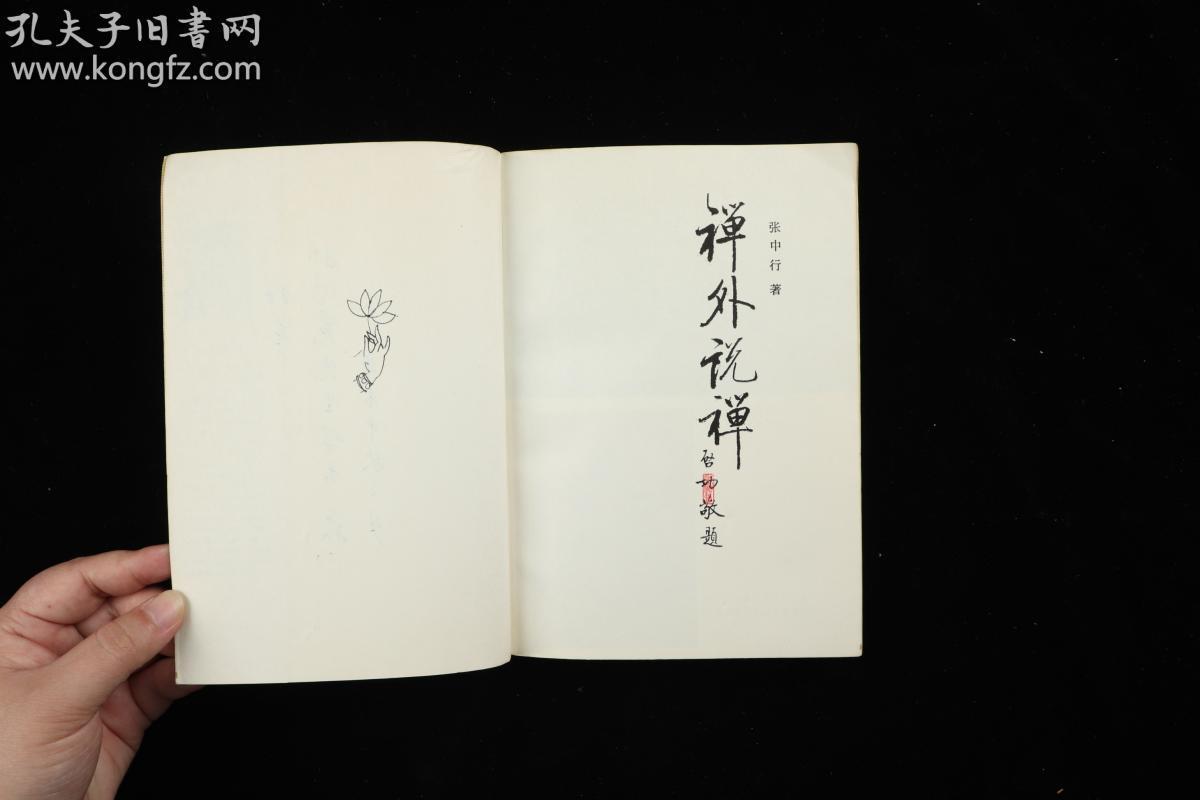 孔夫子旧書网
www.kongfz.com
张中行 著
禅外说禅
启功敬题